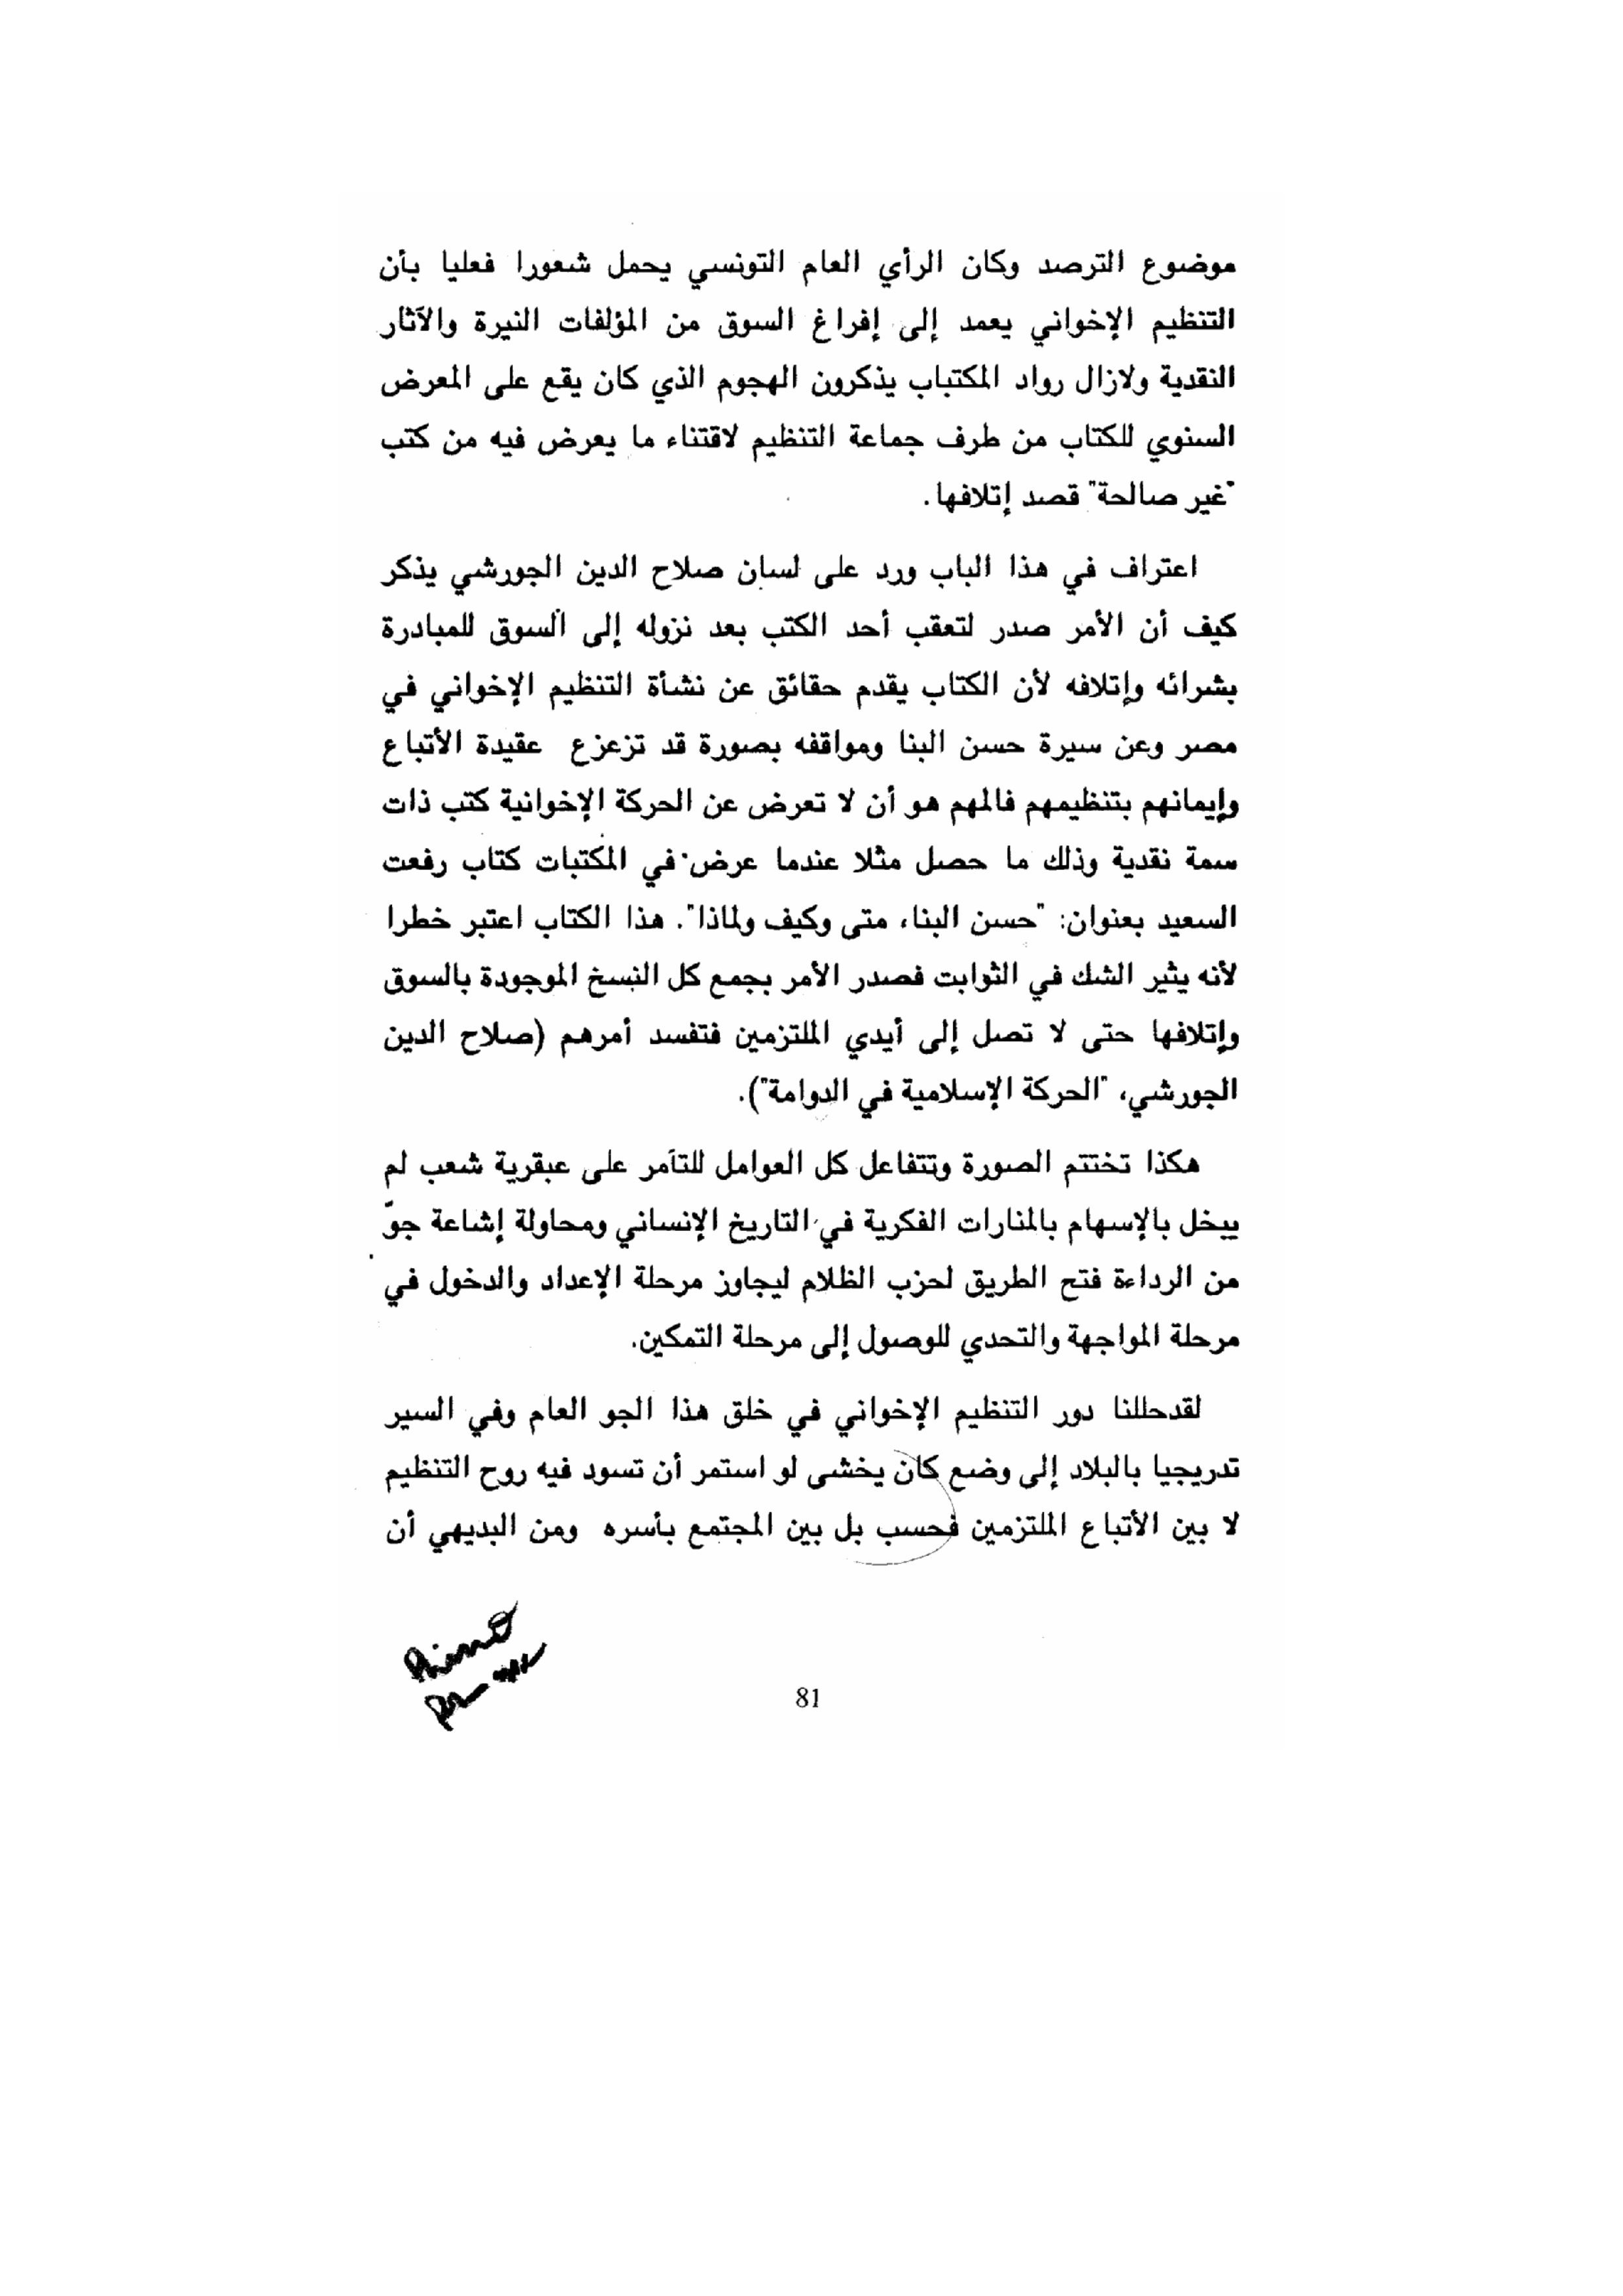 موضوع الترصد وكان الرأي العام التونسي يحمل شعورا فعليا بأن
التنظيم الإخواني يعمد إلى إفراغ السوق من المؤلفات النيرة والآثار
النقدية ولازال رواد المكتباب يذكرون الهجوم الذي كان يقع على المعرض
السنوي للكتاب من طرف جماعة التنظيم لاقتناء ما يعرض فيه من كتب
"غير صالحة" قصد إتلافها.
اعتراف في هذا الباب ورد على لسان صلاح الدين الجورشي يذكر
كيف أن الأمر صدر لتعقب أحد الكتب بعد نزوله إلى السوق للمبادرة
بشرائه وإتلافه لأن الكتاب يقدم حقائق عن نشأة التنظيم الإخواني في
مصر وعن سيرة حسن البنا ومواقفه بصورة قد تزعزع عقيدة الأتباع
وإيمانهم بتنظيمهم فالمهم هو أن لا تعرض عن الحركة الإخوانية كتب ذات
سمة نقدية وذلك ما حصل مثلا عندما عرض في المكتبات كتاب رفعت
السعيد بعنوان: "حسن البنا، متى وكيف ولماذا". هذا الكتاب اعتبر خطرا
لأنه يثير الشك في الثوابت فصدر الأمر بجمع كل النسخ الموجودة بالسوق
وإتلافها حتى لا تصل إلى أيدي الملتزمين فتفسد أمرهم (صلاح الدين
الجورشي، "الحركة الإسلامية في الدوامة").
هكذا تختتم الصورة وتتفاعل كل العوامل للتآمر على عبقرية شعب لم
يبخل بالإسهام بالمنارات الفكرية في التاريخ الإنساني ومحاولة إشاعة جوّ
من الرداءة فتح الطريق لحزب الظلام ليجاوز مرحلة الإعداد والدخول في
مرحلة المواجهة والتحدي للوصول إلى مرحلة التمكين.
لقدحللنا دور التنظيم الإخواني في خلق هذا الجو العام وفي السير
تدريجيا بالبلاد إلى وضع كان يخشى لو استمر أن تسود فيه روح التنظيم
لا بين الأتباع الملتزمين فحسب بل بين المجتمع بأسره ومن البديهي أن
81